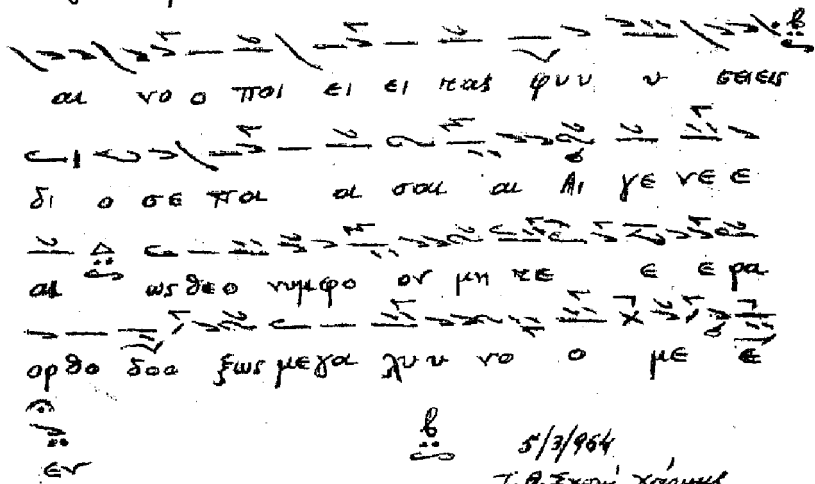 αι νο ο ποι ει ει πας φυυ υ σεις
δι ο σε παι αι σαι αι Αι γε νε ε
αι ως θεο νυμφο ον μη τε ε ε ρα
ορ θο δοο ξως με γα λυυ νο ο με ε
εν
5/3/964